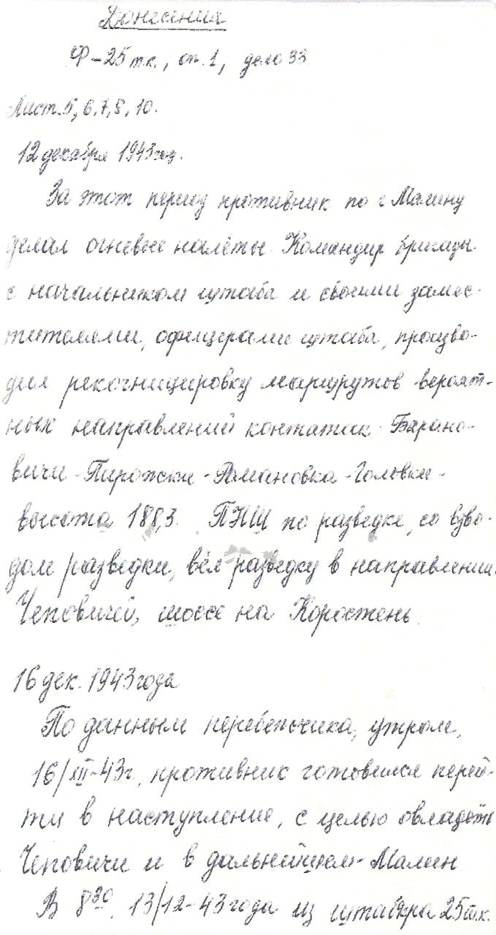 Донесения
Ф-25 т.к., оп.1, дело 33
Лист. 5, 6, 7, 8, 10.
12 декабря 1943 год.
За этот период противник по г. Малину
делал огневые налёты. Командир бригады
с начальником штаба и своими замес-
тителями, офицерами штаба, произво-
дил рекогнишировку маршрутов вероят-
ных направлений контатик Барано-
вичи-Пирожки-Романовка-Головки-
высота 188,3. ПНШ по разведке, со взво-
дом разведки, вёл разведку в направлении
Чеповичей, шоссе на Коростень.
16 дек. 1943 года
По данным перебежчика, утром,
16/XII-43г, противник готовился перей-
ти в наступление, с целью овладеть
Чеповичи и в дальнейшем Малин
В 8³⁰ 13/12-43 года из штабкра 25 т.к.